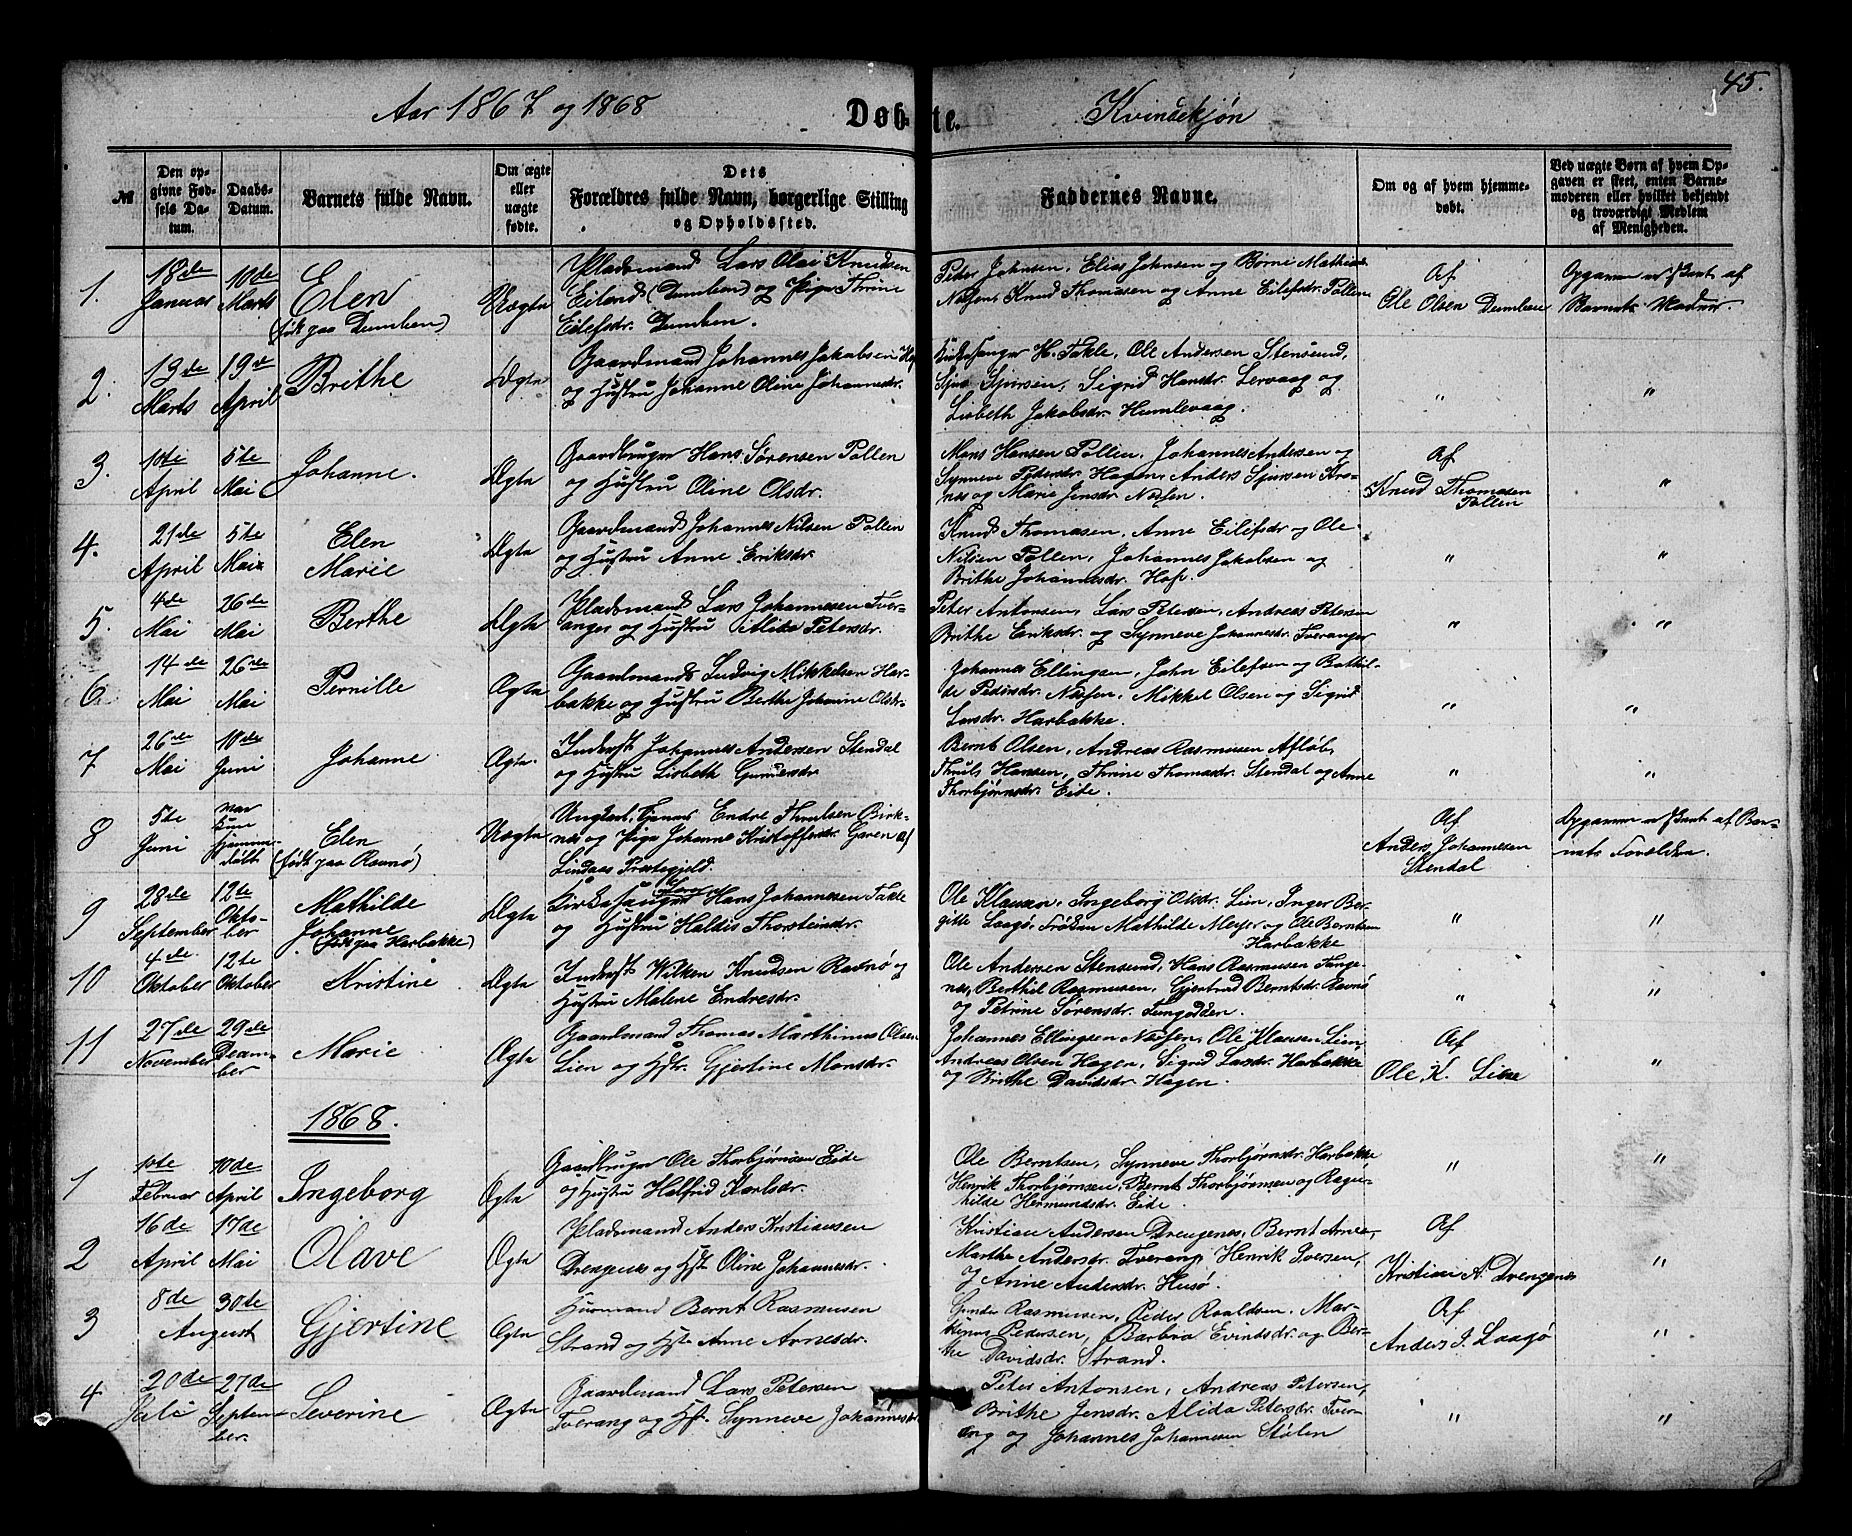 45.
Aar 1867 og 1868 Døbte. Kvindekjøn
№
Den opgivne Fødsels Datum.
Daabs-Datum.
Barnets fulde Navn.
Om ægte eller uægte fødte.
Dets Forældres fulde Navn, borgerlige Stilling og Opholdssted.
Faddernes Navne.
Om og af hvem hjemmedøbt.
Ved uægte Børn af hvem Opgaven er skeet, enten Barnemoderen eller hvilket bekjendt og troværdigt Medlem af Menigheden.
1. 18de Januar 10de Marts Elen (født paa Dumben) Uægte
Pladsmand Lars Olai Knudsen
Eiland (Dumben) og Pige Thrine
Eilefsdr. Dumben.
Peter Johnsen, Elias Johnsen og Børne Mathias
Nilsen, Knud Thomasen og Anne Eilefsdr. Pollen
Af
Ole Olsen Dumben
Opgaven er skeet af
Barnets Moder.
2. 13de Marts 19de April Brithe Ægte
Gaardmand Johannes Jakobsen
og Hustru Johanne Oline Johannesdr.
Kirkesanger H. Takle, Ole Andersen Stensund,
Sjur Sjursen, Sigrid Hansdr. Lervaag og
Lisbeth Jakobsdr. Humlevaag.
" "
3. 10de April 5te Mai Johanne. Ægte
Gaardbruger Hans Sørensen Pollen
og Hustru Oline Olsdr.
Mons Hansen Pollen, Johannes Andersen og
Synneve Pedersdr. Hagen, Anders Sjursen
og Marie Jensdr.
Af
Knud Thomasen
Pollen
"
4. 21de April 5te Mai Elen Marie Ægte
Gaardmand Johannes Nilsen Pollen
og Hustru Anne Eriksdr.
Knud Thomasen, Anne Eilefsdr og Ole
Nilsen Pollen, Johannes Jakobsen og
Brithe Johannesdr. Hope.
" "
5. 4de Mai 26de Mai Berthe Ægte
Pladsmand Lars Johannesen Tver-
anger og Hustru Alida Petersdr.
Peter Antonsen, Lars Petersen, Andreas Petersen
Brithe Eriksdr. og Synneve Johannesdr. Tveranger
" "
6 14de Mai 26de Mai Pernille Ægte
Gaardmand Ludvig Mikkelsen Har-
bakke og Hustru Berthe Johanne Olsdr.
Johannes Ellingsen, John Eilefsen og Bothil-
de Pedersdr. Mikkel Olsen og Sigrid
Larsdr. Harbakke.
" "
7 26de Mai 10de Juni Johanne Ægte.
Inderst Johannes Andersen Stendal
og Hustru Lisbeth Gundersdr
Bernt Olsen, Andreas Rasmusen Afløb,
Thuls Hansen, Thrine Thomasdr. Stendal og Anne
Thorbjørnsdr. Eide.
" "
8 5te Juni var kun hjemmedøbt Elen (født paa Ravnø) Uægte
Ungkarl, Tjener Endre Thrulsen Birk-
nes og Pige Johanne Kristoffersdr. Garen af
Lindaas Præstegjeld.
Af
Anders Johannesen
Stendal
Opgaven er skeet af Bar-
nets Forældre.
9 28de September 12te Oktober Mathilde Johanne (født paa Harbakke) Ægte
Kirkesanger Hans Johannesen Takle
og Hustru Haldis Thorsteinsdr.
Ole Klausen, Ingeborg Olsdr. Lien, Inger Ber-
gitte Laagø, Frøken Mathilde Meyer og Ole Berntsen
Harbakke
" "
10 4de Oktober 12te Oktober Kristine Ægte
Inderst Wilken Knudsen Ravnø og
Hustru Malene Endresdr.
Ole Andersen Stensund, Hans Rasmusen Tange-
nes, Berthil Rasmusen, Gjertrud Berntsdr. Ravnø
og Petrine Sørensdr. Tungodden.
" "
11 27de November 29de December Marie Ægte
Gaardmand Thomas Marthinus Olsen
Lien og Hstr. Gjertine Monsdr.
Johannes Ellingsen, Ole Klausen Lien,
Andreas Olsen Hagen, Sigrid Larsdr. Harbakke
og Brithe Davidsdr. Hagen.
Af
Ole K. Lien
"
1868.
1 10de Februar 10de April Ingeborg Ægte
Gaardbruger Ole Thorbjørnsen Eide
og Hustru Halfrid Karlsdr.
Ole Berntsen, Synneve Thorbjørnsdr. Harbakke
Henrik Thorbjørnsen, Bernt Thorbjørnsen og Ragn-
hilde Hermundsdr. Eide.
" "
2 16de April 17de Mai Olave Ægte
Pladsmand Anders Kristiansen
Drengenes og Hstr. Oline Johannesdr.
Kristian Andersen Drengenes, Bernt
Marthe Andersdr. Tverang, Henrik Iversen,
og Anne Andersdr. Husø.
Af
Kristian A. Drengenes
"
3 8de 30de August Gjertine Ægte
Huusmand Bernt Rasmusen
Strand og Hstr. Anne Arnesdr.
Gunder Rasmusen, Peder Roaldsen, Mar-
thinus Pedersen, Barbra Evindsdr. og Ber-
the Davidsdr. Strand.
Af
Anders J. Laagø
"
4 20de Juli 27de September Severine Ægte
Gaardmand Lars Petersen
Tverang og Hstr. Synneve Johannesdr.
Peter Antonsen, Andreas Petersen,
Brithe Jensdr. Alida Petersdr. Tver-
ang og Johannes Johannesen Stølen
" "